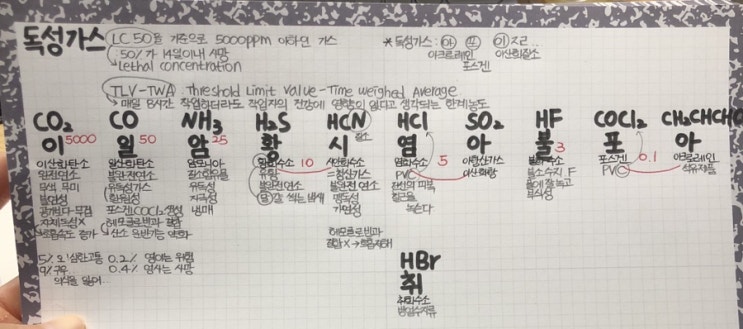 독성가스
LC 50을 기준으로 5000ppm 이하인 가스
50%가 14일이내 사망
Lethal concentration
* 독성가스 : 아 포 이 지르...
아크로레인 이산화질소
포스겐
TLV-TWA Threshold Limit Value-Time Weighed Average
매일 8시간 작업하더라도 작업자의 건강에 영향이 없다고 생각되는 한계농도
CO2 CO NH3 H2S HCN HCl SO2 HF COCl2 CH2CHCHO
이 5000 일 50 암 25 황 시 염 아 불 3 포 아
10 5 0.1
이산화탄소
무색 무미
불연성
공기보다 무겁
자체독성X
호흡속도 증가
5% 오! 심한고통
9% 구우
의식을 잃어..
일산화탄소
불완전연소
유독성가스
환원성
포스겐COCl2 생성
헤모글로빈과 결합
산소 운반기능 약화
0.2% 1시간 위험
0.4% 1시간 사망
암모니아
질소함유물
유독성
자극성
냉매
황화수소
유황
불완전연소
달걀 썩는 냄새
질소
시안화수소
=청산가스
불완전 연소
맹독성
가연성
헤모글로빈과
결합X→호흡저해
염화수소
PVC
전선의 피복
금속을
녹슨다
아황산가스
이산화황
불화수소
불소수지 F
물에 잘 녹고
부식성
포스겐
PVC
아크로레인
석유제품
HBr
취
취화수소
방염수지류